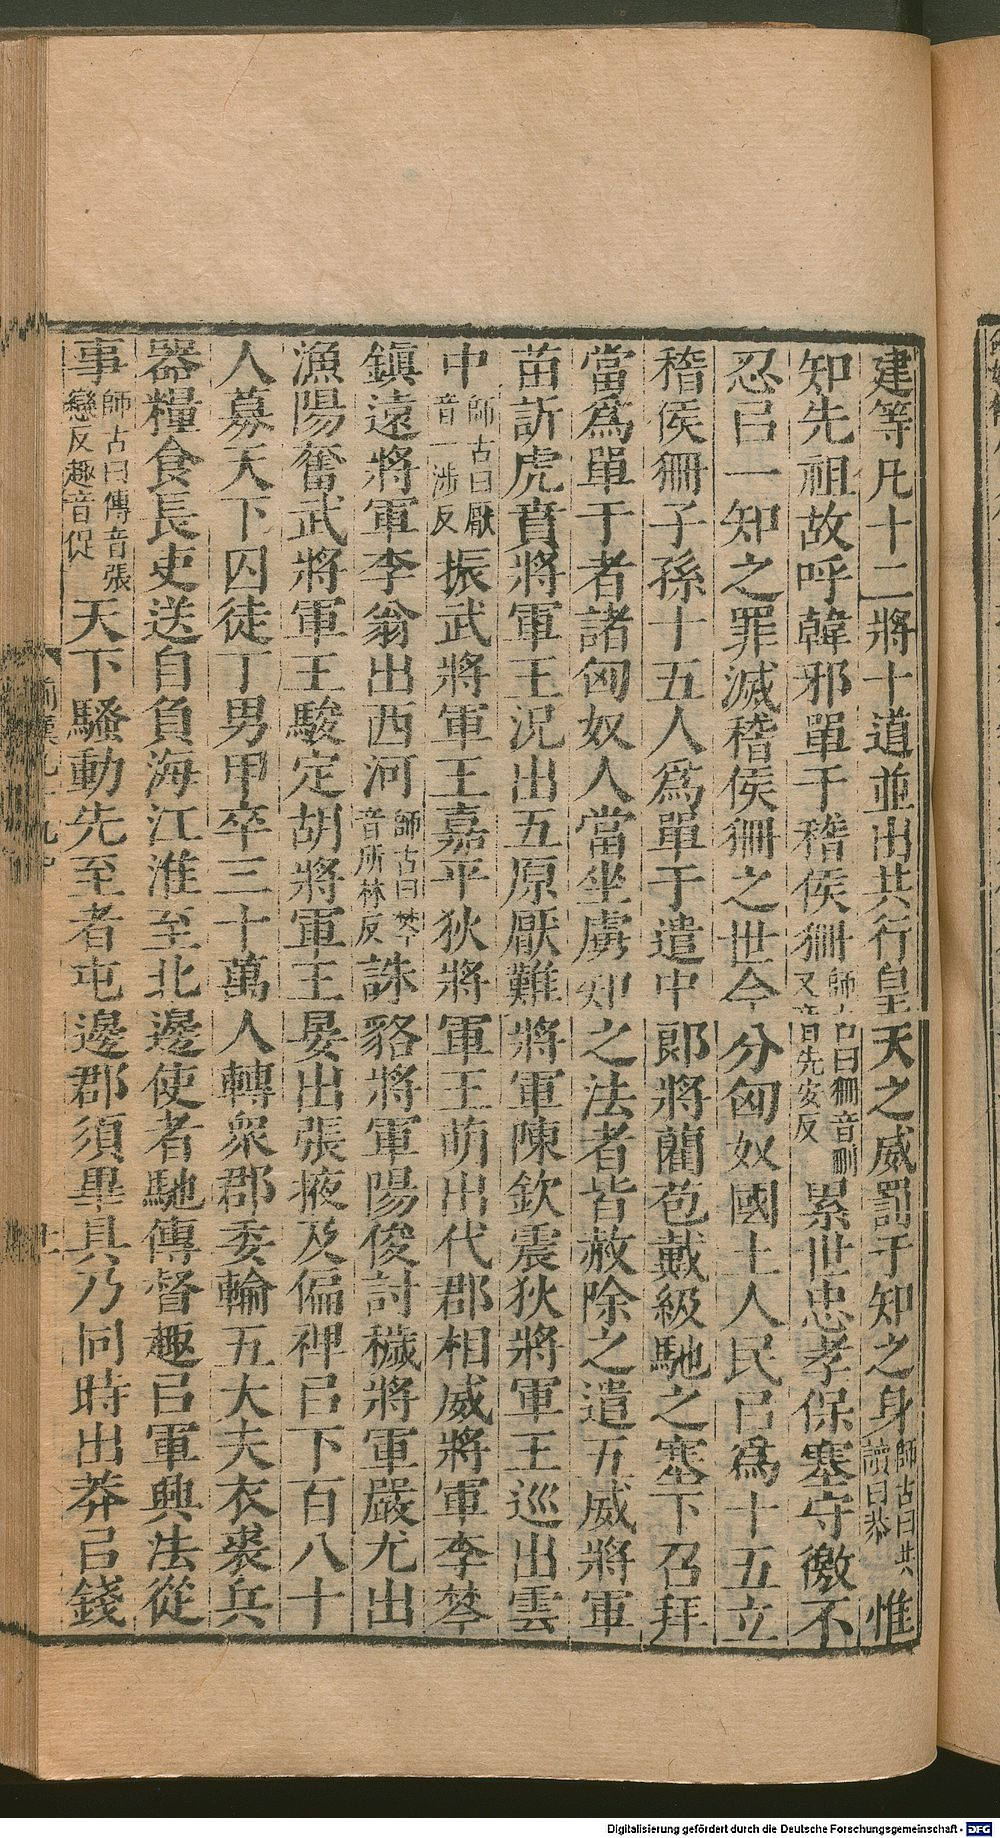 建等凡十二將十道並出共行皇天之威罰于知之身師古曰共讀曰恭惟
知先祖故呼韓邪單于稽侯狦師古曰狦音刪又音先安反累世忠孝保塞守徼不
忍㠯一知之罪滅稽侯狦之世今分匈奴國土人民㠯爲十五立
稽侯狦子孫十五人爲單于遣中郎將藺苞戴級馳之塞下召拜
當爲單于者諸匈奴人當坐虜知之法者皆赦除之遣五威將軍
苗訢虎賁將軍王況出五原厭難將軍陳欽震狄將軍王巡出雲
中師古曰厭音一涉反振武將軍王嘉平狄將軍王萌出代郡相威將軍李棽
鎮遠將軍李翁出西河師古曰棽音所林反誅貉將軍陽俊討穢將軍嚴尤出
漁陽奮武將軍王駿定胡將軍王晏出張掖及偏裨㠯下百八十
人募天下囚徒丁男甲卒三十萬人轉衆郡委輸五大夫衣裘兵
器糧食長吏送自負海江淮至北邊使者馳傳督趣㠯軍興法從
事師古曰傳音張戀反趣音促天下騷動先至者屯邊郡須畢具乃同時出莽㠯錢
Digitalisierung gefördert durch die Deutsche Forschungsgemeinschaft - DFG